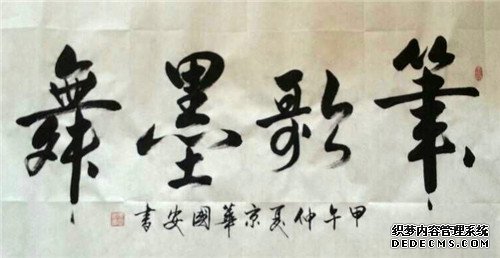 筆歌墨舞
甲午仲夏京華國安書
织梦内容管理系统
DEDECMS.COM